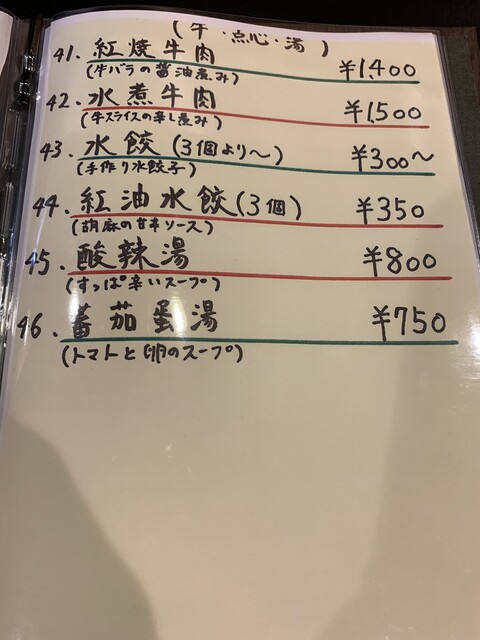 (牛・点心・湯)
41. 紅焼牛肉 ¥1,400
(牛バラの醤油煮み)
42. 水煮牛肉 ¥1,500
(牛スライスの辛し煮み)
43. 水餃(3個より〜) ¥300〜
(手作り水餃子)
44. 紅油水餃(3個) ¥350
(胡麻の甘辛ソース)
45. 酸辣湯 ¥800
(すっぱ辛いスープ)
46. 蕃茄蛋湯 ¥750
(トマトと卵のスープ)